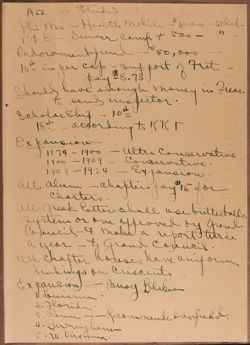 Phi Mu — Health Mobile $
— Denver Camp + 500 —
Endowment Fund — $50,000 —
16¢ in per cap — support of Frat.
pay $5.73
Should have enough money in Treas.
to send inspector.
Scholarship — 10th
15th — according to KKΓ.
Expansion
1874 - 1900 — Ultra Conservative
1900 - 1909 — Conservative.
1909 - 1924 — Expansion.
All alum chapters pay $15 for
charters.
All Great Letters shall use budget
system or one approved by Grand
Council & make a report twice
a year — to Grand Council.
All chapter houses have uniform
on Crescents
Expansion — Pansy Blake
1. Louisiana
2. Florida
3. — Recommended
4. Birmingham
5. W. Virginia